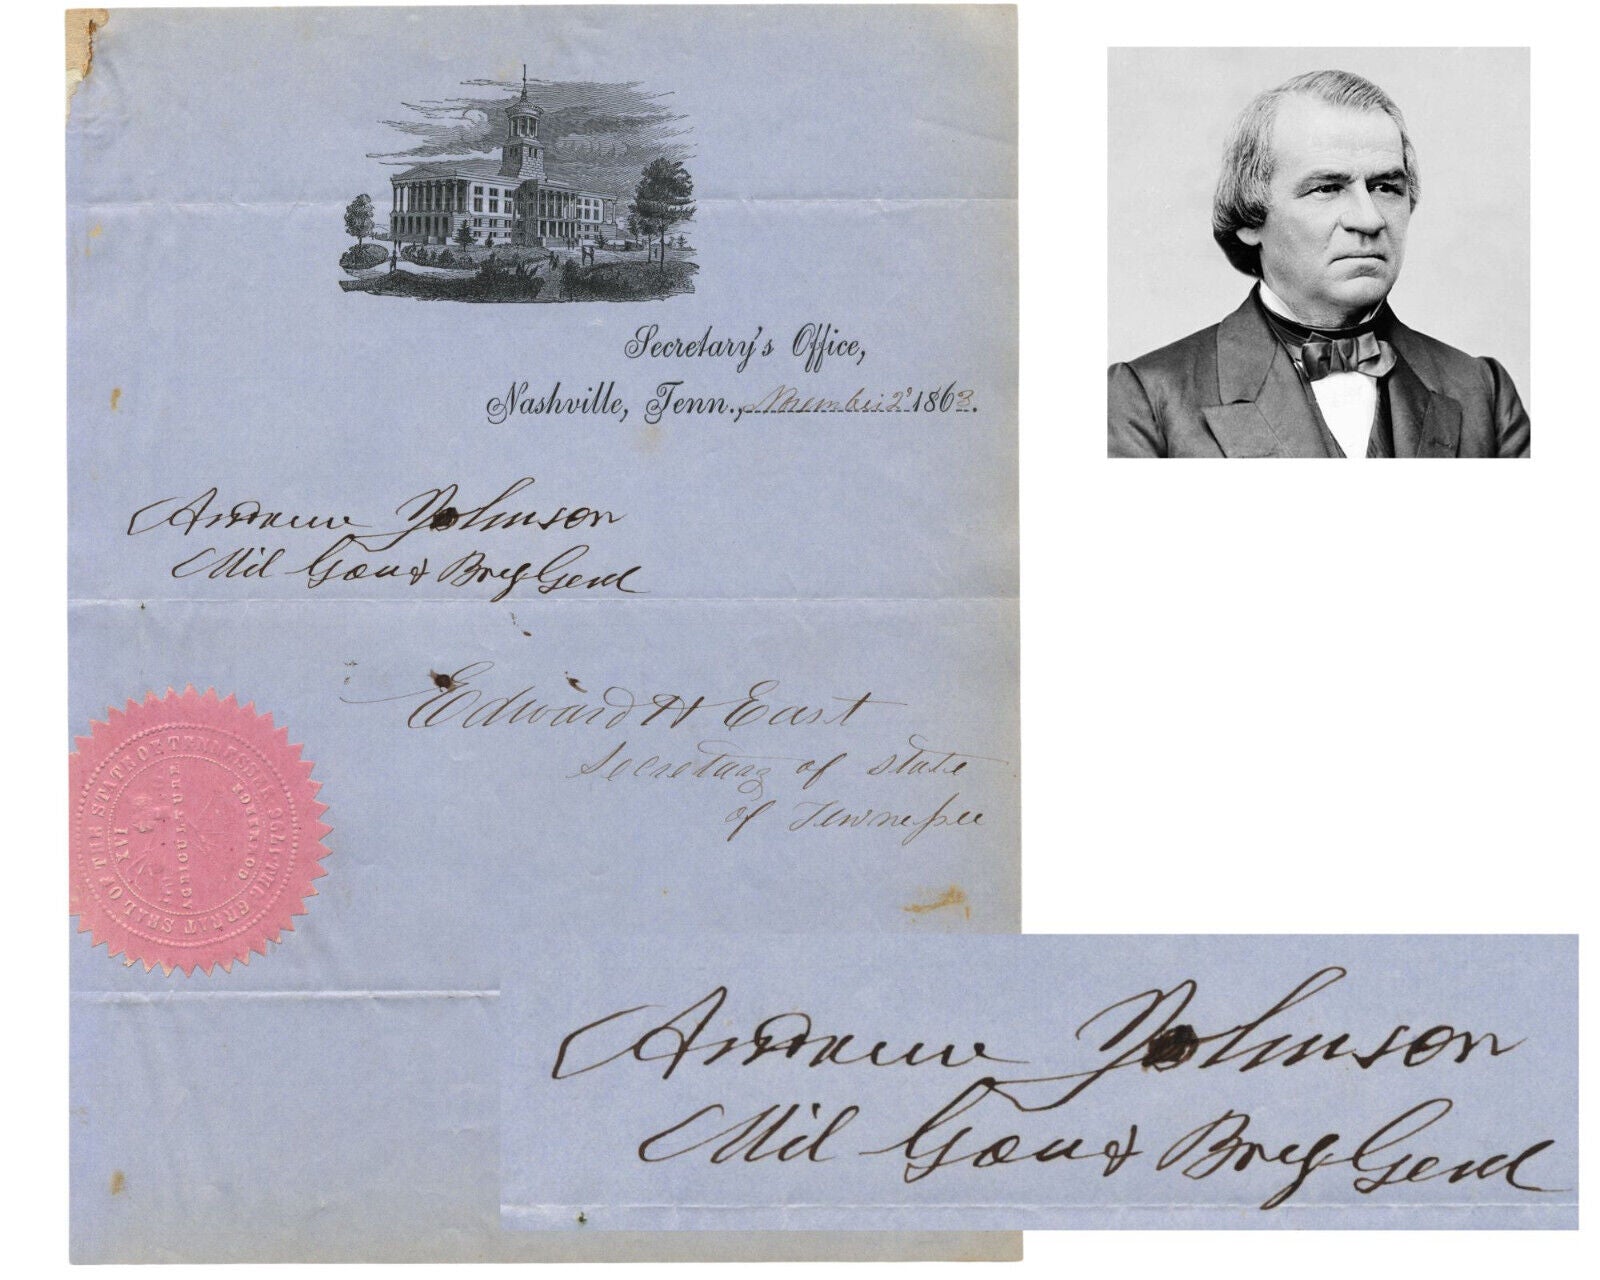 Secretary's Office,
Nashville, Tenn., November 2d 1863.
Andrew Johnson
Mil Gov & Brig Genl
Edward H East
Secretary of State
of Tennessee
THE GREAT SEAL OF THE STATE OF TENNESSEE 1796
XVI
AGRICULTURE
COMMERCE
Andrew Johnson
Mil Gov & Brig Genl